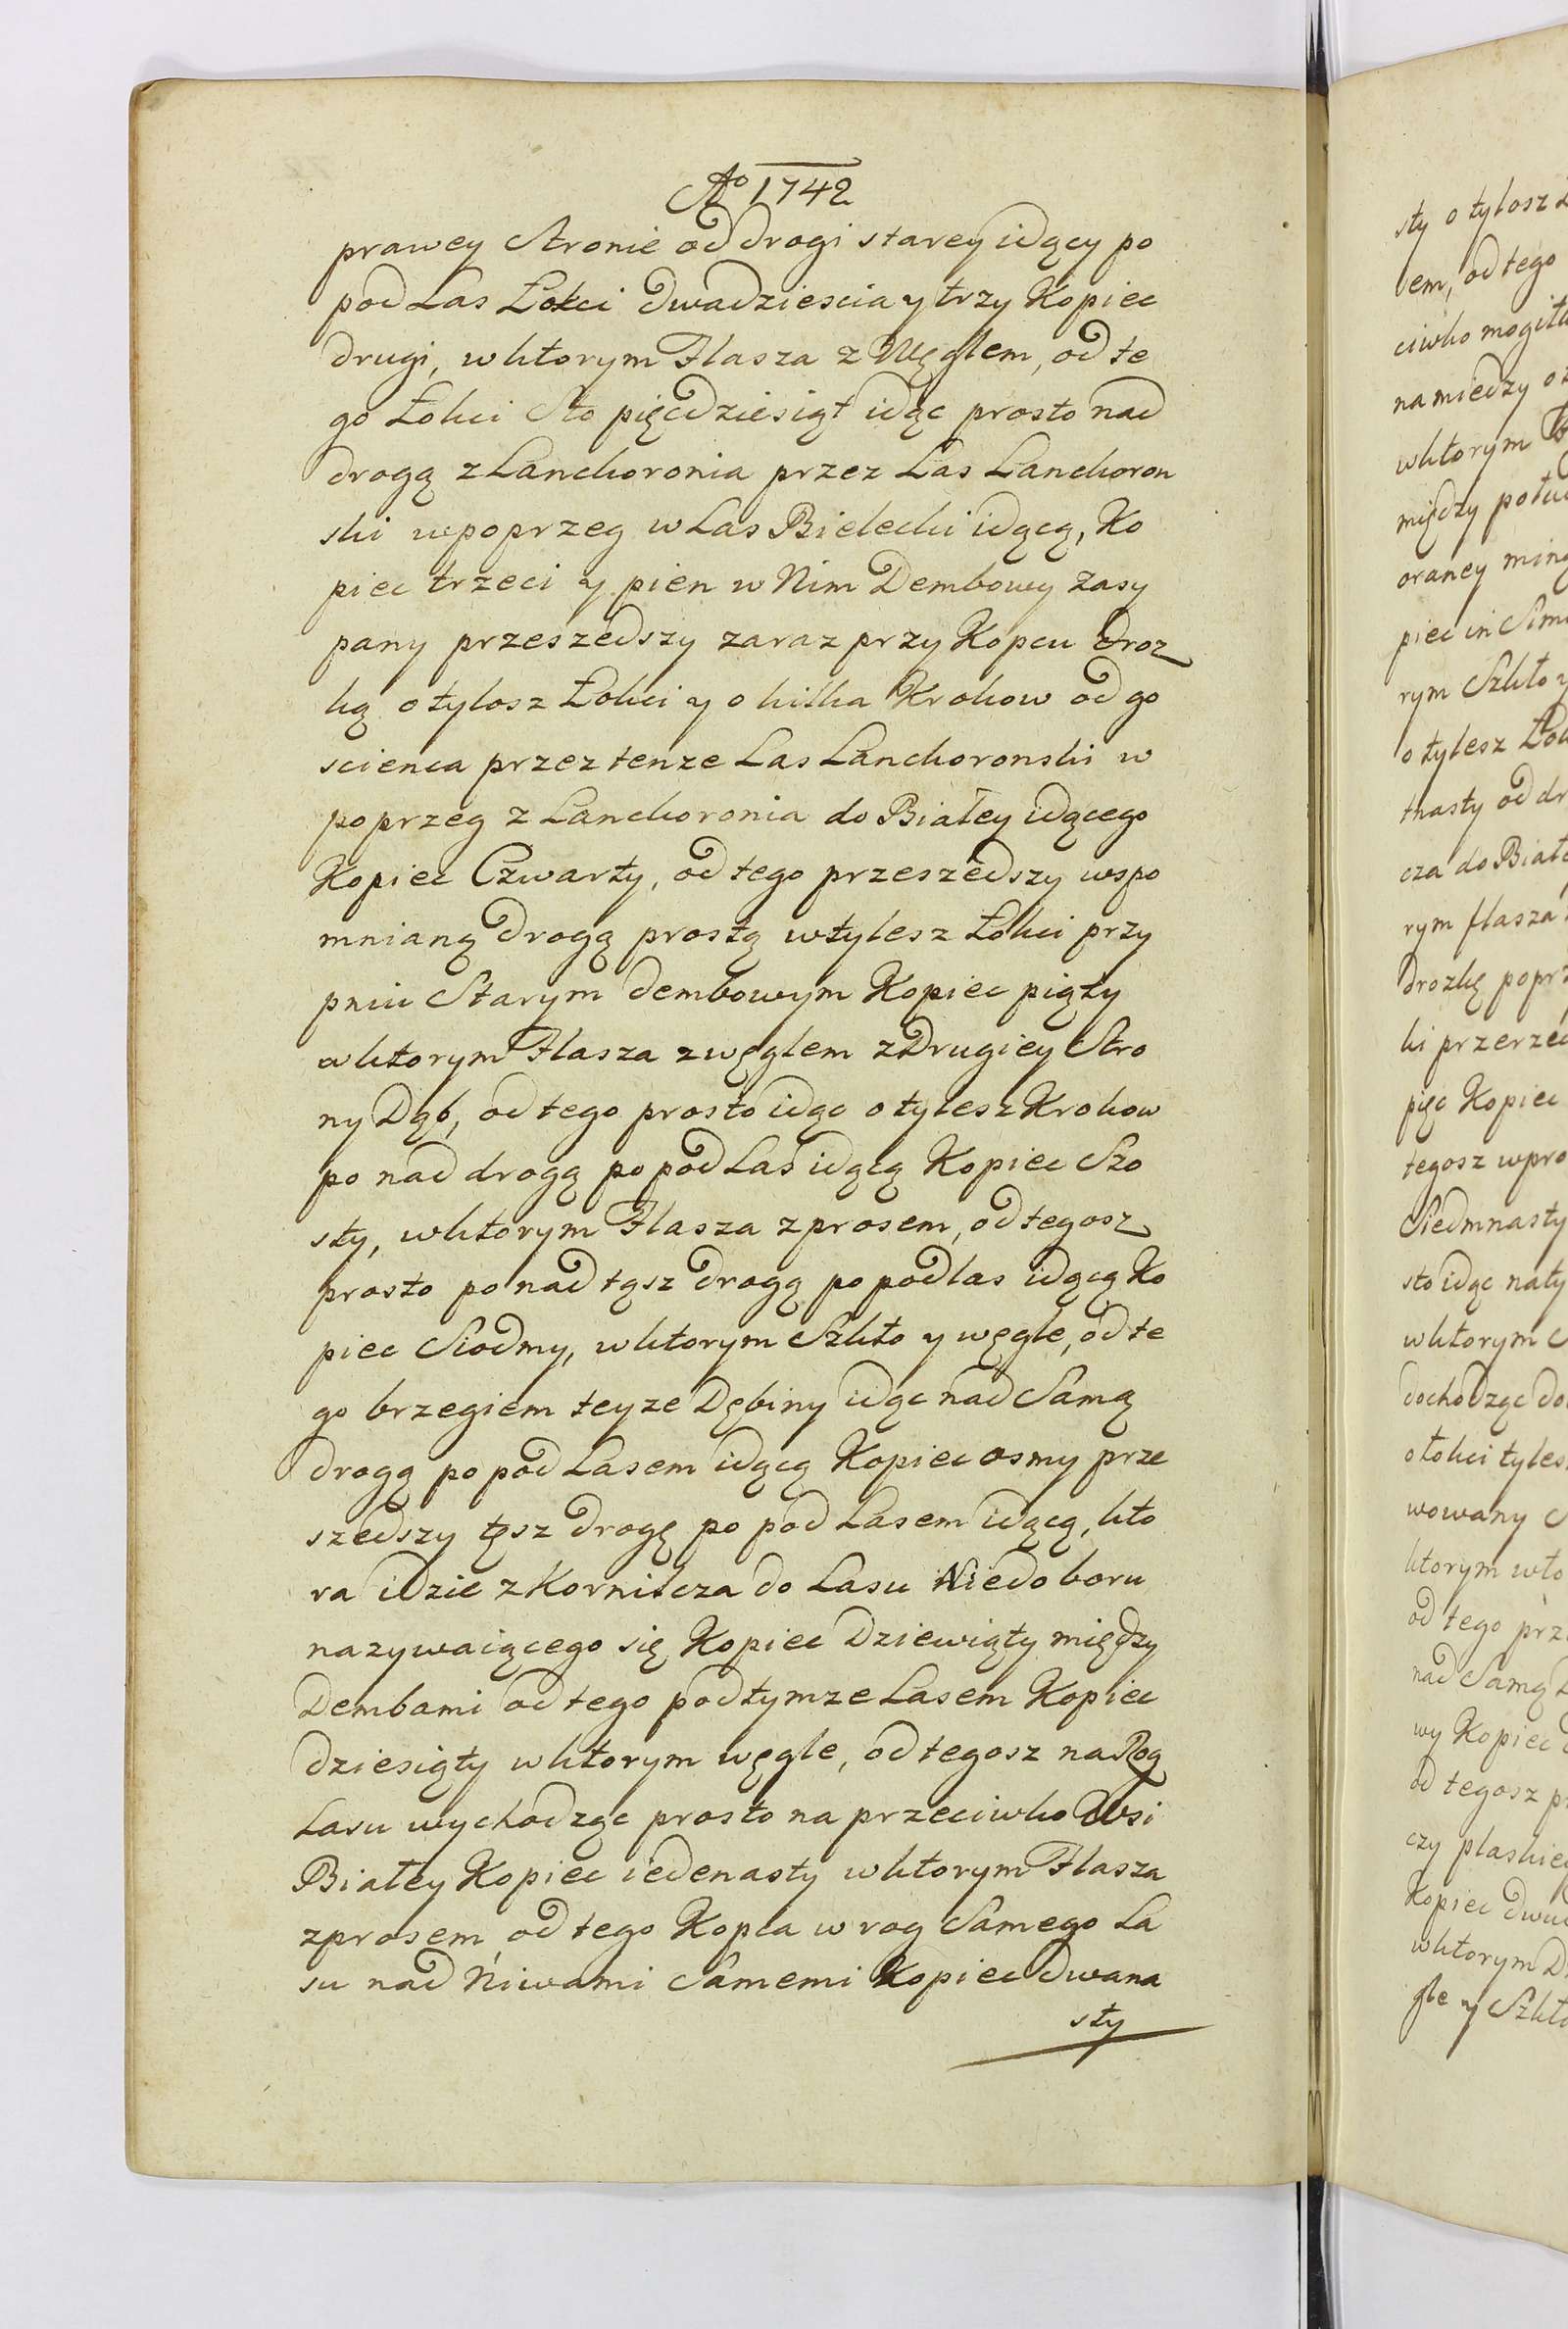 Ao 1742
prawey Stronie od drogi starey idący po
pod Las Łokci dwadziescia y trzy Kopiec
drugi, wktorym Flasza z Węglem, od te
go Łokci Sto pięcdziesiąt idąc prosto nad
drogą z Lanckoronia przez Las Lanckoron
ski wpoprzeg w Las Bielecki idącą, Ko
piec trzeci y pien w Nim Dembowy zasy
pany przeszedszy zaraz przy Kopcu droz
ką o tylosz Łokci y o kilka Krokow od go
scienca przez tenze Las Lanckoronski w
poprzeg z Lanckoronia do Białey idącego
Kopiec Czwarty, od tego przeszedszy wspo
mnianą drogą prostą wtylesz Łokci przy
pniu Starym dembowym Kopiec piąty
wktorym Flasza zwęglem z Drugiey Stro
ny Dąb, od tego prosto idąc o tylesz Krokow
po nad drogą po pod Las idącą Kopiec Szo
sty, wktorym Flasza zprosem, od tegosz
prosto po nad tąsz drogą po podlas idącą Ko
piec Siodmy, wktorym Szkło y węgle, od te
go brzegiem teyze Dębiny idąc nad Samą
drogą po pod Lasem idącą Kopiec osmy prze
szedszy tęsz drogę po pod Lasem idącą, kto
ra idzie z Kornilcza do Lasu Niedoboru
nazywaiącego się Kopiec Dziewiąty między
Dembami od tego pod tymze Lasem Kopiec
dziesiąty wktorym węgle, od tegosz na Rog
Lasu wychodząc prosto na przeciwko Wsi
Białey Kopiec iedenasty wktorym Flasza
zprosem, od tego Kopca w rog Samego La
su nad Niwami Samemi Kopiec dwana
sty
sty o tylosz
em, od tego
ciwko
na miedzy
wktorym
między
oraney
piec in
rym Szkło y
o tylesz
tnasty od
cza do
rym flasza
drozkę
ki
pięc Kopiec
tegosz
Siedmnasty
sto idąc
wktorym
dochodząc
o łokci
wowany
ktorym
od tego
nad Samą
wy Kopiec
od tegosz
czy
Kopiec
wktorym
gle y